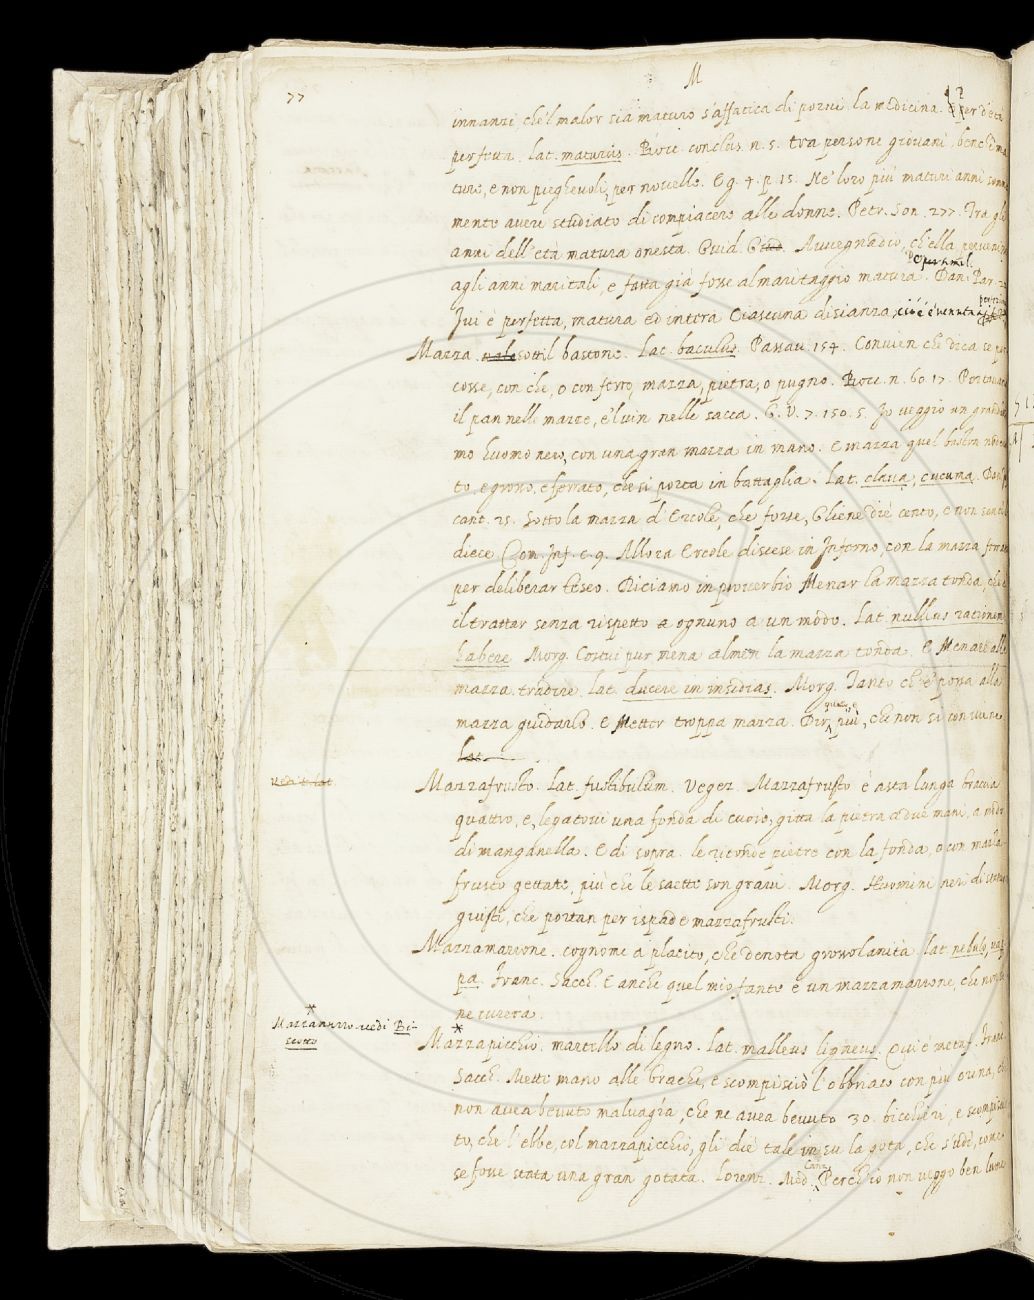 77
M
innanzi che'l malor sia maturo s'affatica di porvi la medicina. E per d'età
perfetta. lat. maturus. Bocc. conclus. n. 5. tra persone giovani, benche ma
ture, e non pieghevoli, per novelle. E g. 4. p. 15. Ne' loro più maturi anni somma
mente avere studiato di compiacere alle donne. Petr. Son. 277. Tra gli
anni dell'età matura onesta. Guid. Giud. Avvegnadio, ch'ella pervenisse
agli anni maritali, e fatta già fosse al maritaggio matura. Dan. Par. 22
Per simil.
Ivi è perfetta, matura ed intera Ciascuna disianza, cioè è venuta a
perfezione
Mazza. sottil bastone. Lat. baculus. Passav. 154. Convien che dica se per
cosse, con che, o con ferro, mazza, pietra, o pugno. Bocc. n. 60. 17. Portavano
il pan nelle mazze, e'l vin nelle sacca. G. V. 7. 150. 5. Io veggio un grandis
mo huomo nero, con una gran mazza in mano. E mazza quel baston noderu
to, e grosso, e ferrato, che si porta in battaglia. Lat. clava, Dan.
cant. 25. Sotto la mazza d'Ercole, che forse, Gliene diè cento, e non sentì
diece. Com. Inf. c. 9. Allora Ercole discese in Inferno, con la mazza ferrata
per deliberar Teseo. Diciamo in proverbio Menar la mazza tonda, che è
il trattar senza rispetto ognuno a un modo. Lat. nullius rationem
habere. Morg. Costui pur mena almen la mazza tonda. E Menare alla
mazza. tradire. lat. ducere in insidias. Morg. Tanto ch'e' possa alla
mazza guidarlo. E Metter troppa mazza. Dir più, che non si conviene
lat.
vedi lat.
Mazzafrusto. Lat. fustibulum. Vegez. Mazzafrusto è asta lunga braccia
quattro, e, legatovi una fonda di cuoio, gitta la pietra a due mani, a modo
di manganella. E di sopra. le ritonde pietre con la fonda, o con mazza
frusto gettate, più che le saette son gravi. Morg. Huomini neri di statura
giusti, che portan per ispade mazzafrusti.
Mazzamarrone. cognome a placito, che denota grossolanità. lat. nebulo, vap
pa. Franc. Sacch. E anche quel mio fante è un mazzamarrone, che non se
ne curerà.
* Mazzamurro vedi Bi-
scotto
*
Mazzapicchio. martello di legno. Lat. malleus ligneus. Qui è metaf. Franc.
Sacch. Mette mano alle brache, e scompisciò l'obbriaco con più orina, che
non avea bevuto malvagìa, che ne avea bevuto 30. bicchieri, e scompiscia
to, che l'ebbe, col mazzapicchio, gli diè tale in su la gota, che s'udì, come
se fosse stata una gran gotata. Lorenz. Med. Canz. Perch'io non veggo ben lume